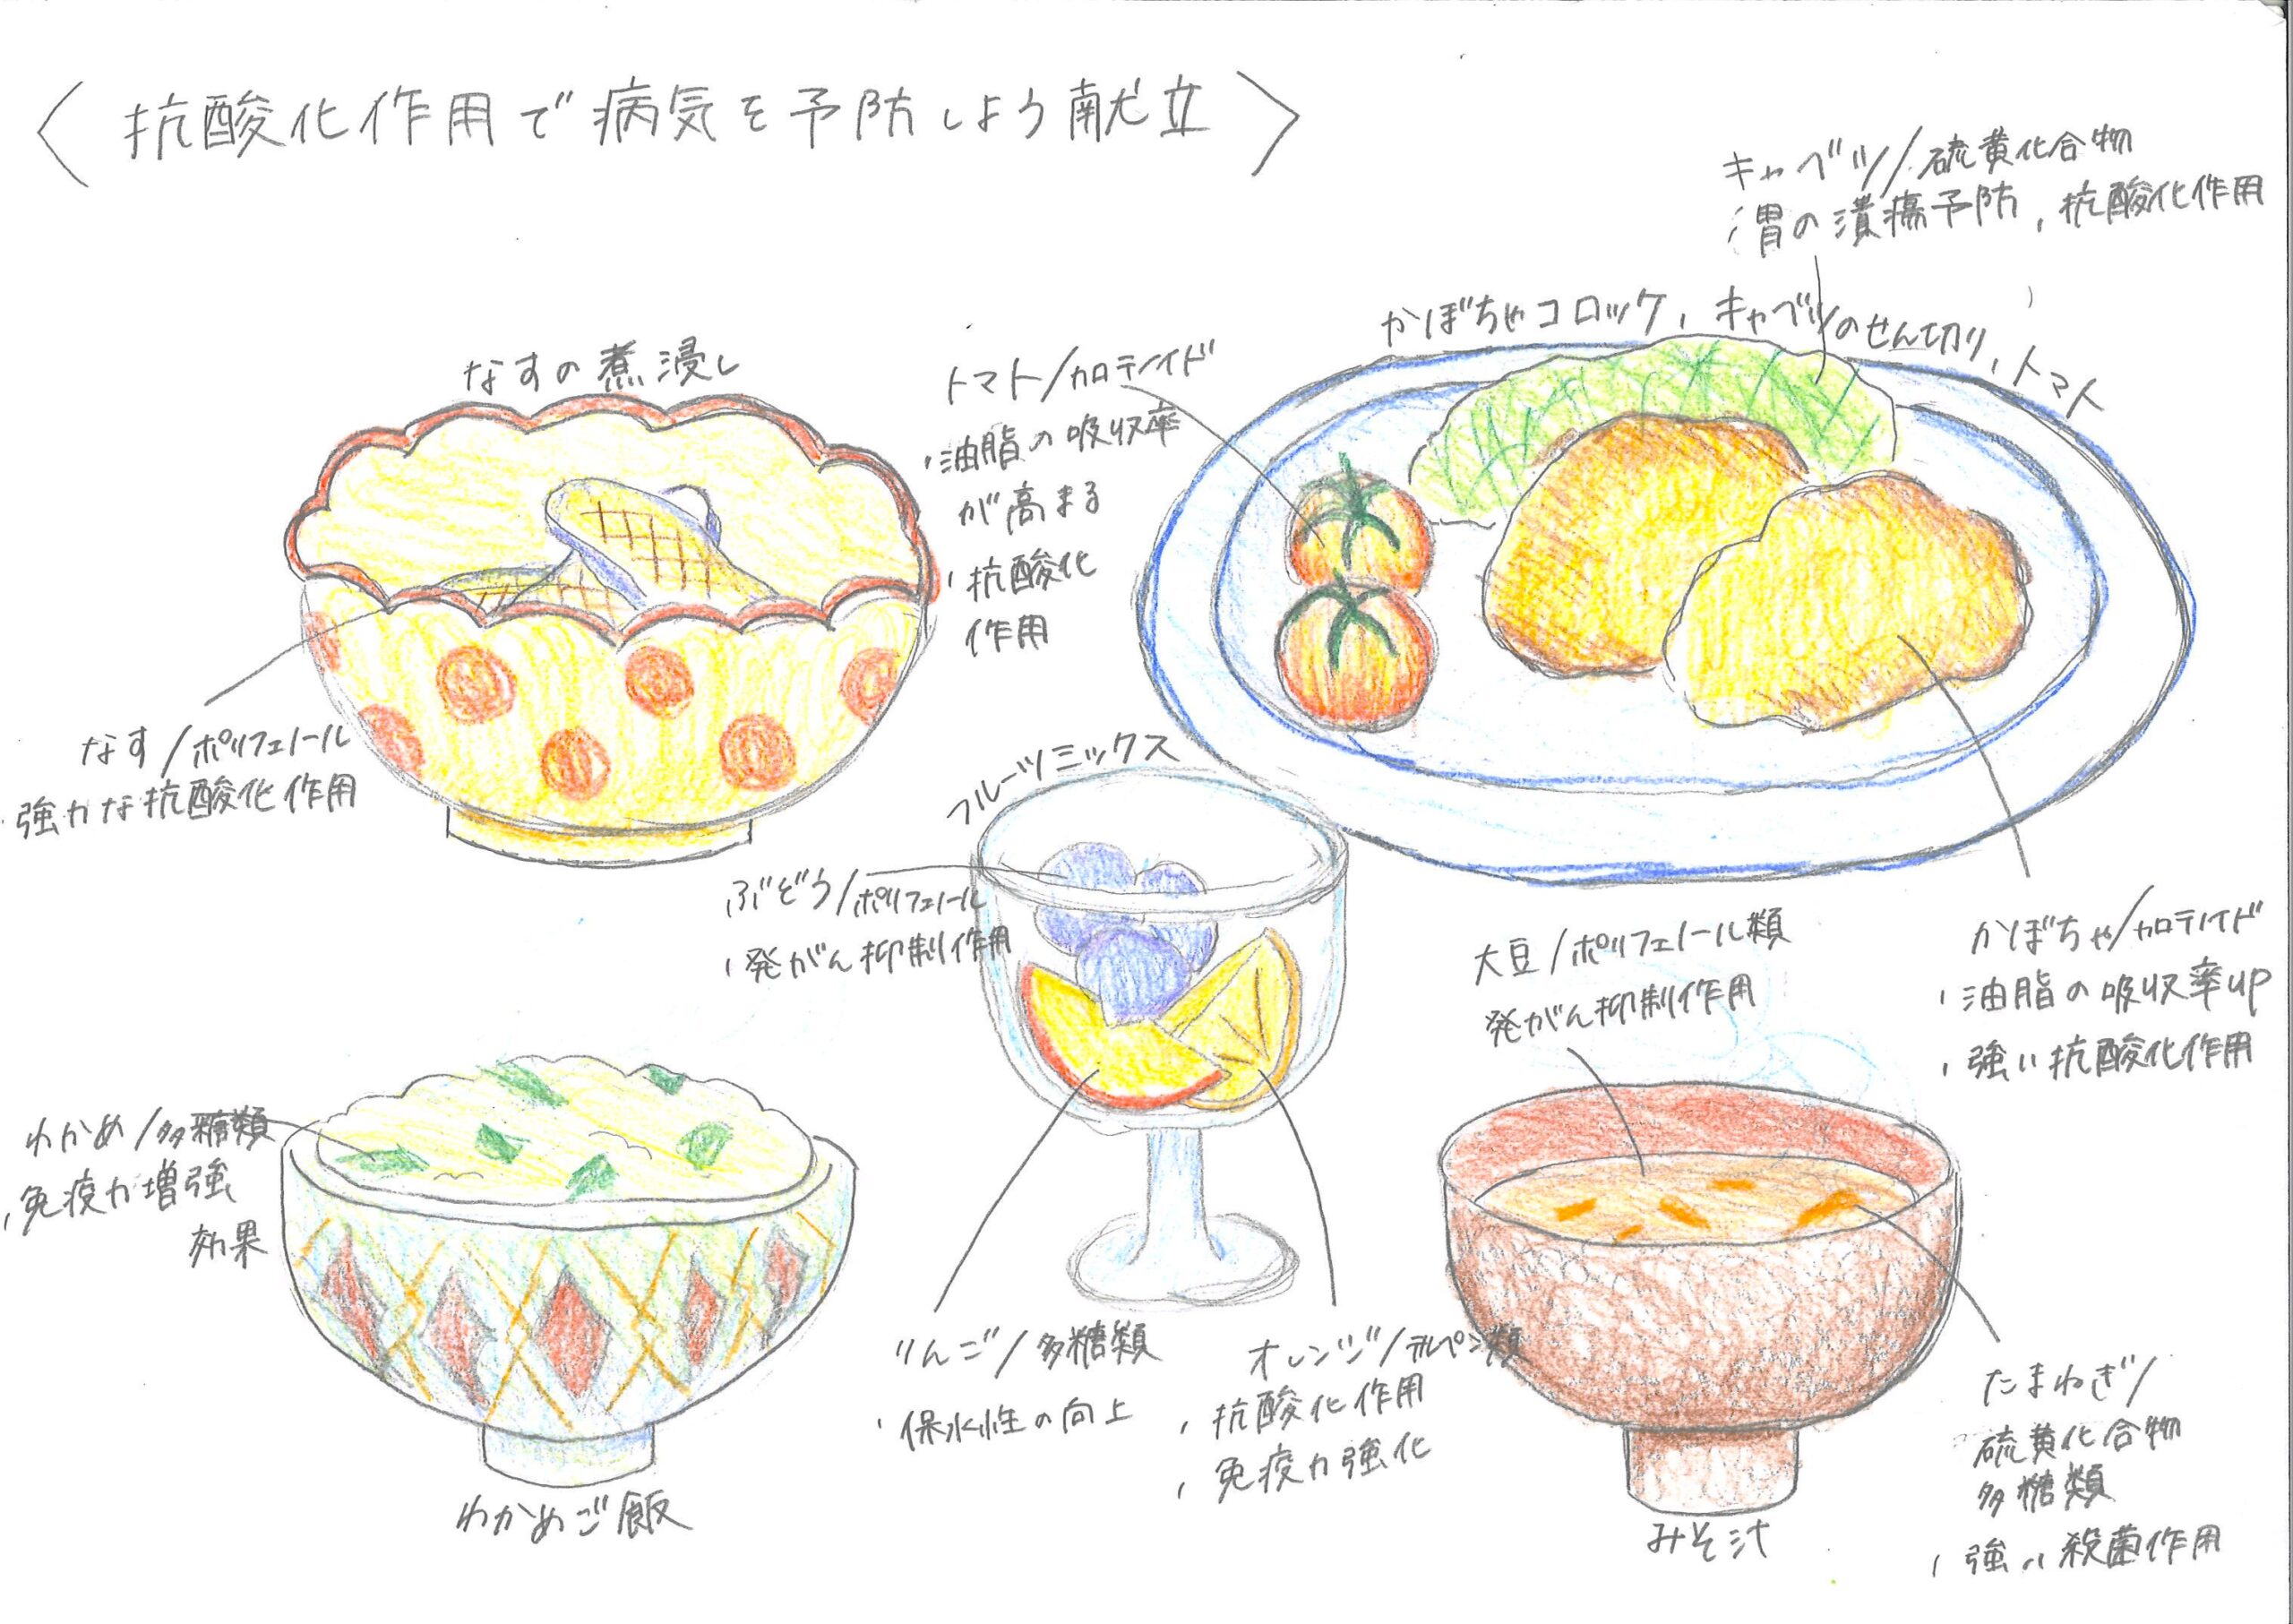 〈抗酸化作用で病気を予防しよう献立〉
キャベツ/硫黄化合物
・胃の潰瘍予防、抗酸化作用
かぼちゃコロッケ、キャベツのせん切り、トマト
なすの煮浸し
トマト/カロテノイド
・油脂の吸収率
が高まる
・抗酸化
作用
なす/ポリフェノール
・強力な抗酸化作用
フルーツミックス
ぶどう/ポリフェノール
・発がん抑制作用
大豆/ポリフェノール類
発がん抑制作用
かぼちゃ/カロテノイド
・油脂の吸収率up
・強い抗酸化作用
わかめ/多糖類
・免疫力増強
効果
わかめご飯
りんご/多糖類
・保水性の向上
オレンジ/テルペン類
・抗酸化作用
・免疫力強化
たまねぎ/
硫黄化合物
多糖類
・強い殺菌作用
みそ汁